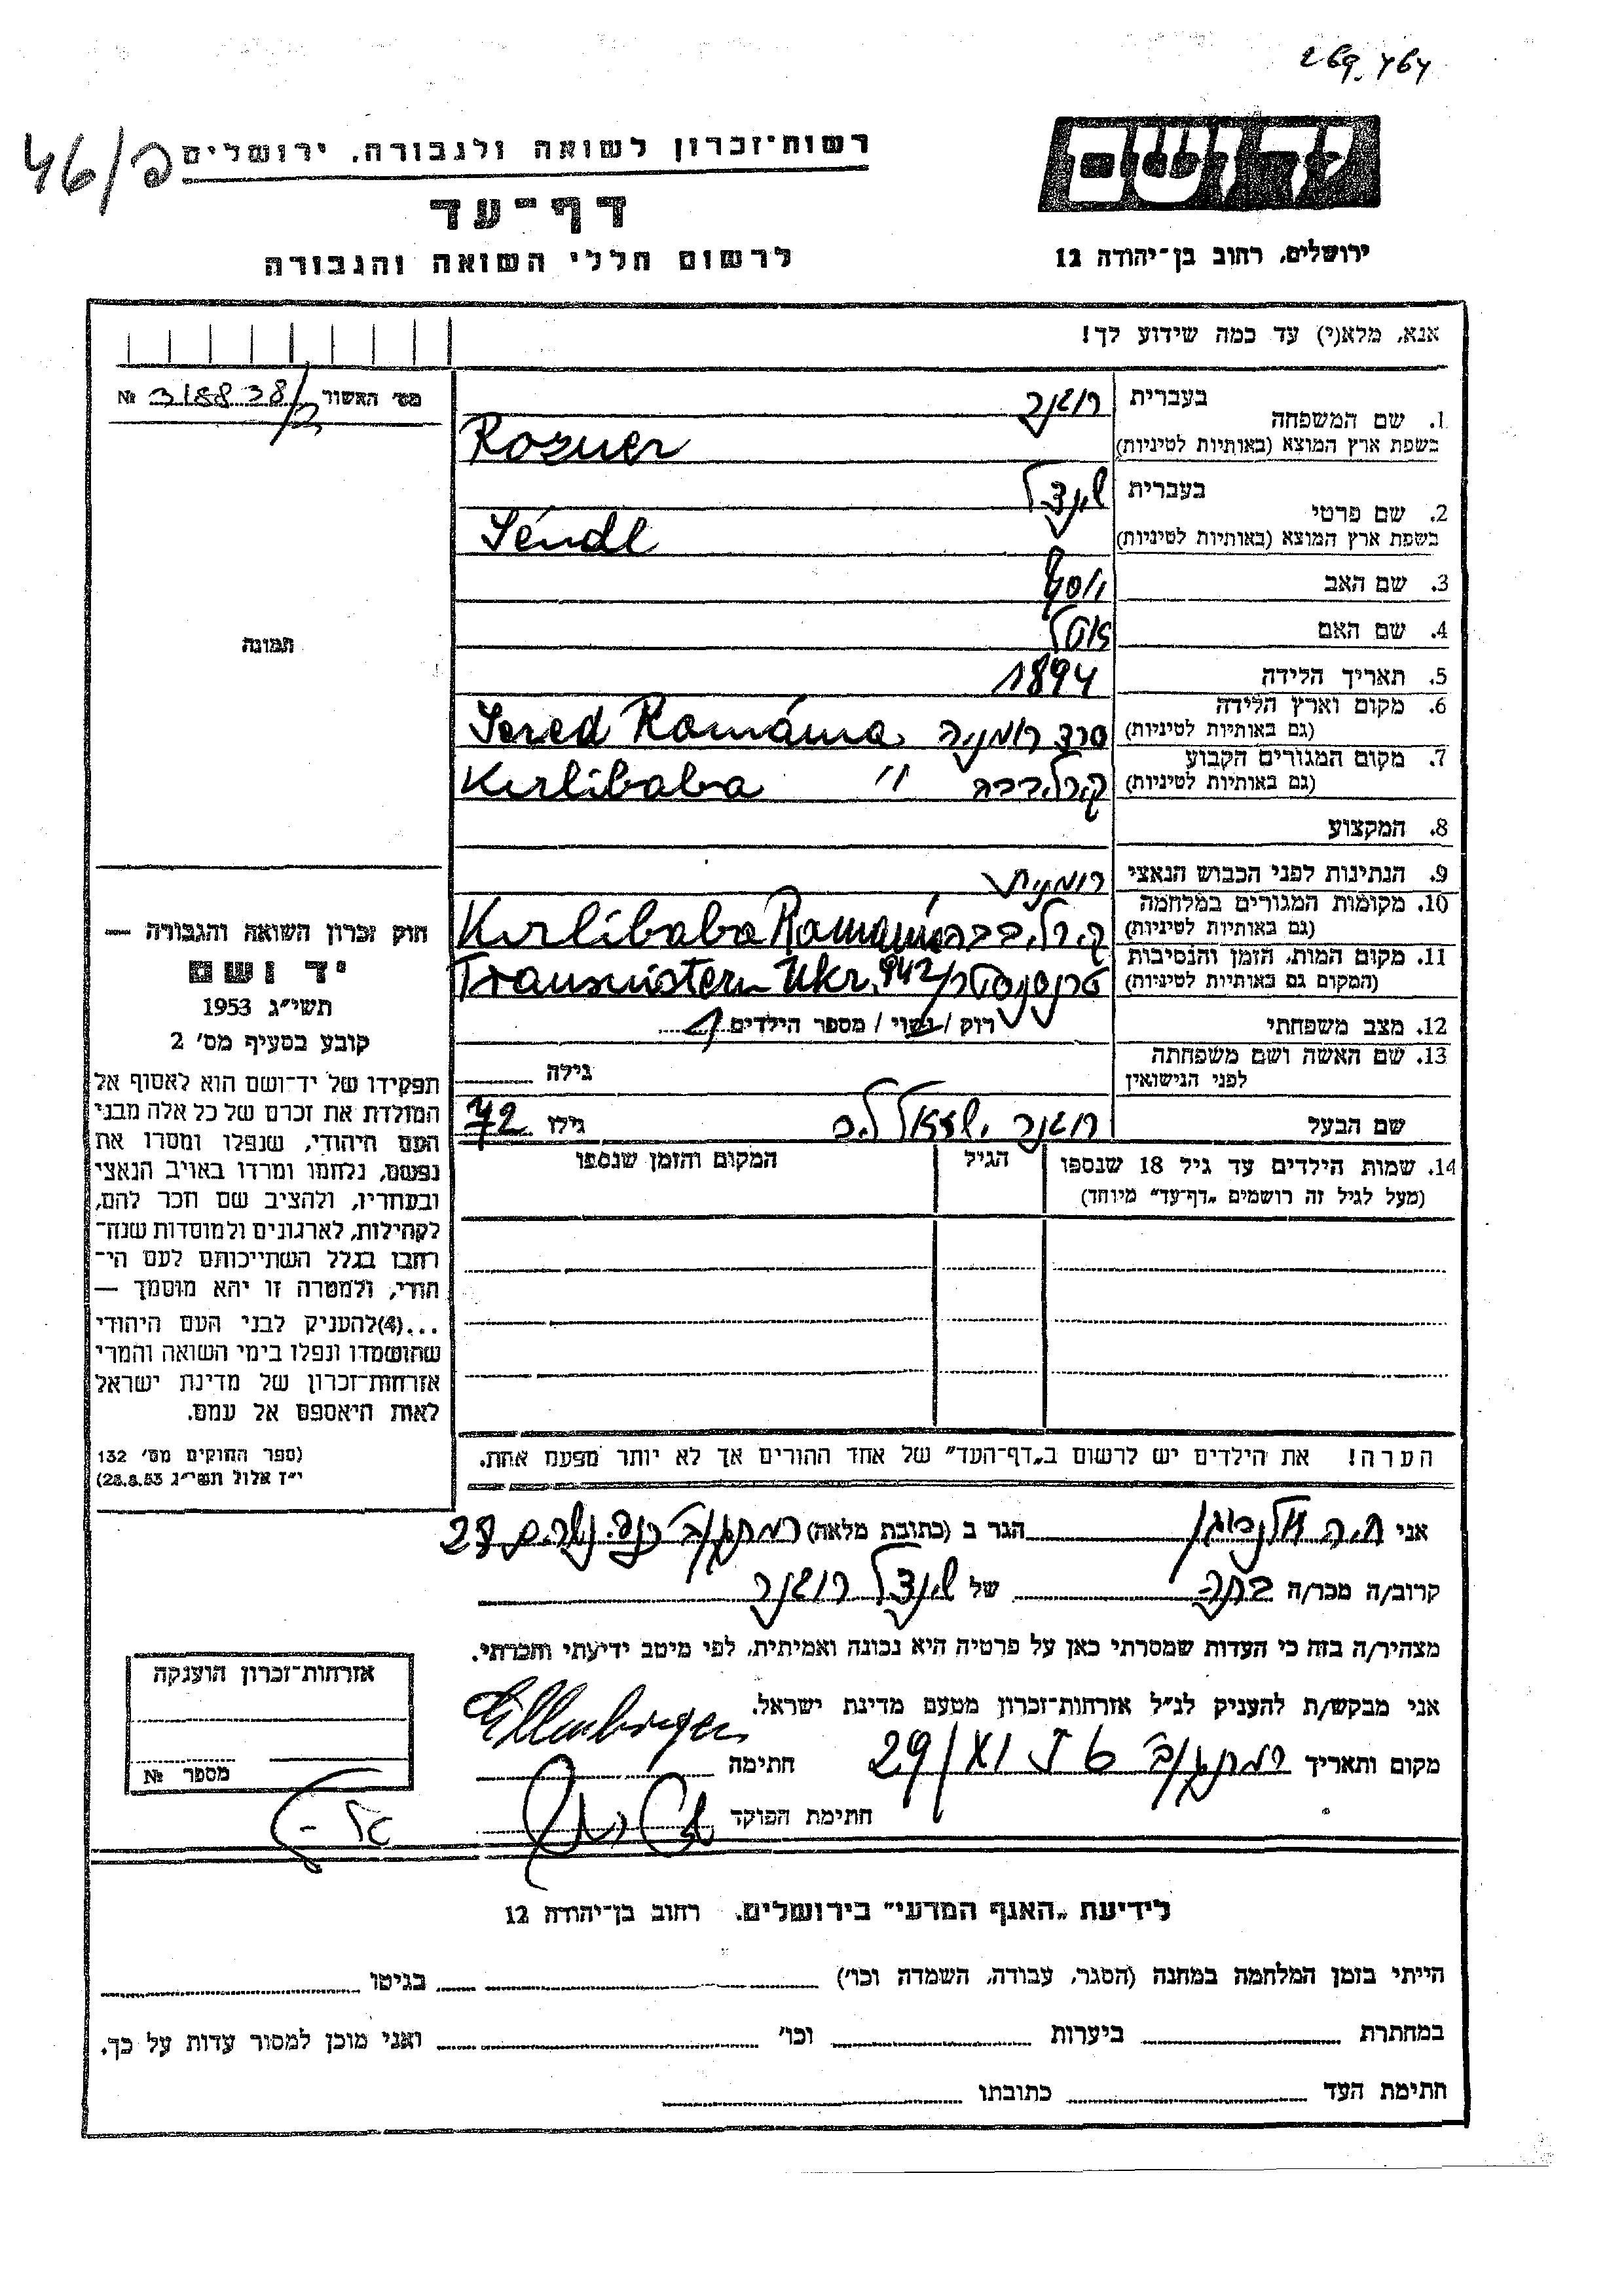 269.464
46/פ
רשות־זכרון לשואה ולגבורה, ירושלים
דף־עד
לרשום חללי השואה והגבורה
ירושלים, רחוב בן־יהודה 12
אנא, מלא(י) עד כמה שידוע לך!
מס׳ האשור № 318838/
1. שם המשפחה בעברית רוזנר
בשפת ארץ המוצא (באותיות לטיניות) Rozner
2. שם פרטי בעברית שנדל
בשפת ארץ המוצא (באותיות לטיניות) Séndl
3. שם האב יוסף
4. שם האם
5. תאריך הלידה 1894
6. מקום וארץ הלידה (גם באותיות לטיניות) סרד רומניה Sered Románia
7. מקום המגורים הקבוע (גם באותיות לטיניות) קרליבבה " Kirlibaba
8. המקצוע
9. הנתינות לפני הכבוש הנאצי רומנית
10. מקומות המגורים במלחמה (גם באותיות לטיניות) קרליבבה Kirlibaba Románia
11. מקום המות, הזמן והנסיבות (המקום גם באותיות לטיניות) Transnistern Ukr. 942
12. מצב משפחתי רוק / נשוי / מספר הילדים
13. שם האשה ושם משפחתה לפני הנישואין גילה
שם הבעל רוזנר ישראל ליב גילו 42
14. שמות הילדים עד גיל 18 שנספו הגיל המקום והזמן שנספו
(מעל לגיל זה רושמים „דף־עד" מיוחד)
הערה! את הילדים יש לרשום ב„דף־העד" של אחד ההורים אך לא יותר מפעם אחת.
תמונה
חוק זכרון השואה והגבורה —
יד ושם
תשי״ג 1953
קובע בסעיף מס׳ 2
תפקידו של יד־ושם הוא לאסוף אל
המולדת את זכרם של כל אלה מבני
העם היהודי, שנפלו ומסרו את
נפשם, נלחמו ומרדו באויב הנאצי
ובעוזריו, ולהציב שם וזכר להם,
לקהילות, לארגונים ולמוסדות שנח־
רחבו בגלל השתייכותם לעם הי־
הודי, ולמטרה זו יהא מוסמך —
...(4)להעניק לבני העם היהודי
שהושמדו ונפלו בימי השואה והמרי
אזרחות־זכרון של מדינת ישראל
לאות היאספם אל עמם.
(ספר החוקים מס׳ 132
י״ז אלול תשי״ג 28.8.53)
אני חיה אלנבוגן הגר ב (כתובת מלאה) רמת גן 28
קרוב/ה מכר/ה בתה של שנדל רוזנר
מצהיר/ה בזה כי העדות שמסרתי כאן על פרטיה היא נכונה ואמיתית, לפי מיטב ידיעתי והכרתי.
אני מבקש/ת להעניק לנ״ל אזרחות־זכרון מטעם מדינת ישראל.
מקום ותאריך 29/XI חתימה
חתימת הפוקד
אזרחות־זכרון הוענקה
מספר №
לידיעת „האגף המדעי" בירושלים, רחוב בן־יהודה 12
הייתי בזמן המלחמה במחנה (הסגר, עבודה, השמדה וכו׳) בגיטו
במחתרת ביערות וכו׳ ואני מוכן למסור עדות על כך.
חתימת העד כתובתו